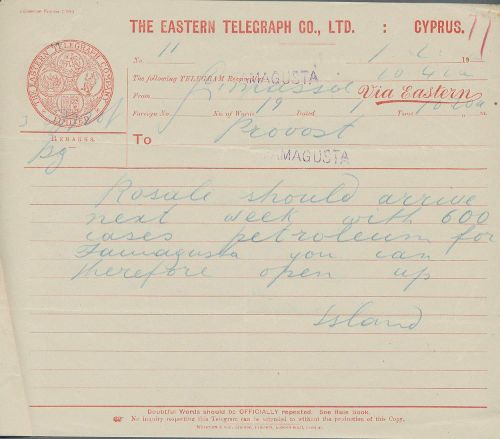 THE EASTERN TELEGRAPH CO., LTD. : CYPRUS.
77
THE EASTERN TELEGRAPH COMPANY
LIMITED
No. 11
19
The following TELEGRAM Received
MAGUSTA
10
From Limassol
Via Eastern
Foreign No. No. of Words 19 Dated 1 Time
REMARKS.
To Provost
FAMAGUSTA
Rosale should arrive
next week with 600
cases petroleum for
Famagusta you can
therefore open up
Island
Doubtful Words should be OFFICIALLY repeated. See Rule Book.
No inquiry respecting this Telegram can be attended to without the production of this Copy.